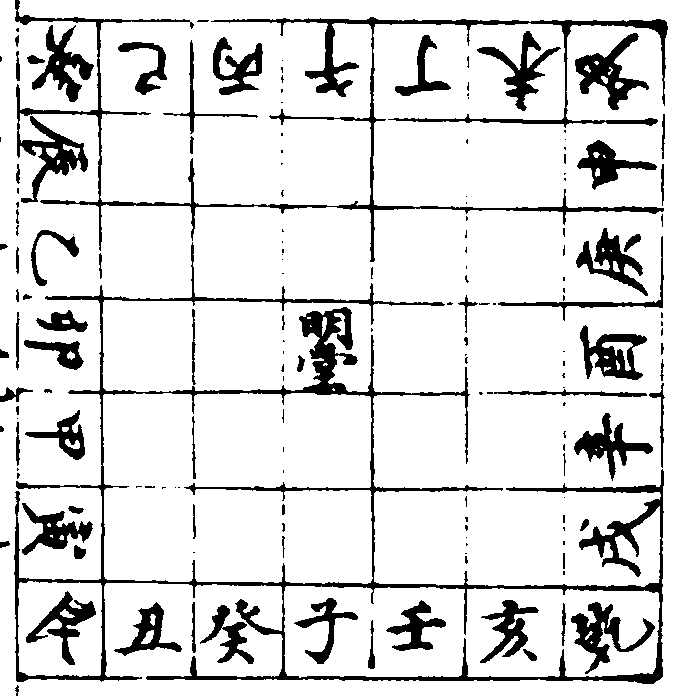 巽 巳 丙 午 丁 未 坤
辰 申
乙 庚
卯 明堂 酉
甲 辛
寅 戌
艮 丑 癸 子 壬 亥 乾